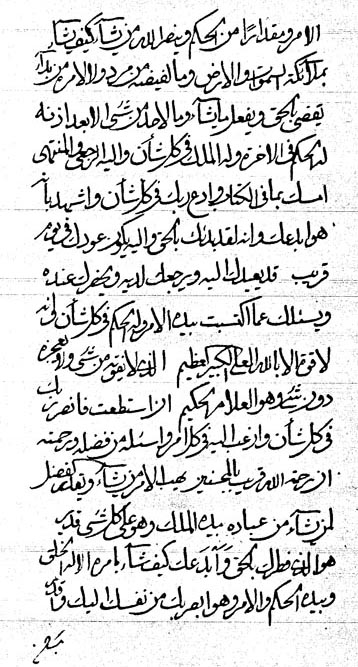 الامر ومقدارا من الحكم وينصر الله من يشآء كيف يشآء
بملآئكة السموات والارض وما لفيضه من مرد وله الامر من
يقضى بالحق ويفعل ما يشآء وما لاحد من شئ الا بعد اذنه
له الحكم فى الاخرة وله الملك فى كل شأن واليه الرجعى والمنتهى
امسك بما فى الكتاب وادع ربك فى كل شأن واشهد بان
هو ابدعك وانه لقد بدئك بالحق واليه يكون عودك فى يوم
قريب قد يعيدك اليه ويرجعك لديه ويحضرك عنده
ويسئلك عما اكتسبت بيده الامر وله الحكم فى كل شأن وانه
لا قوة الا بالله العلى الكبير العظيم الذى لا يفوق من شئ ولا يعجزه
دون شئ وهو العلام الحكيم ان استطعت فانصر ربك
فى كل شأن وارغب اليه فى كل امر واسئله من فضله ورحمته
ان رحمة الله قريب بالمحسنين يهب الامر من يشآء ويفعل الفضل
لمن يشآء من عباده بيده الملك وهو على كل شئ قدير
هو الذى فطرك بالحق وابدعك كيف شآء بامره الا له الخلق
وبيده الحكم والامر وهو اقرب بك من نفسك اليك